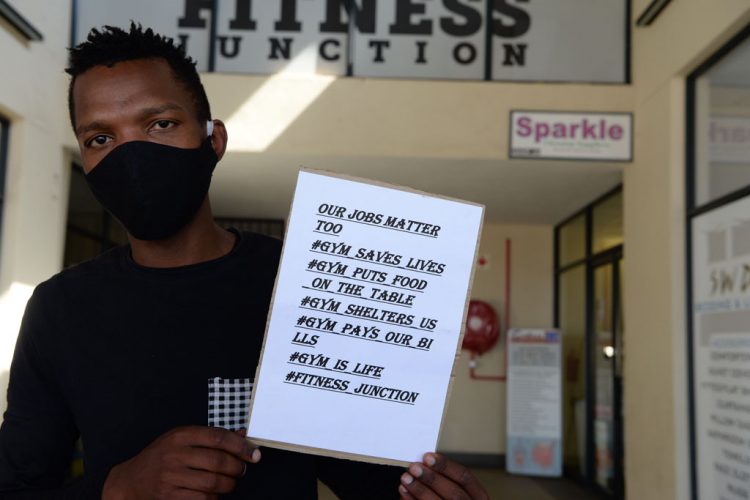 FITNESS
JUNCTION
Sparkle
OUR JOBS MATTER
TOO
#GYM_SAVES_LIVES
#GYM_PUTS_FOOD
_ON_THE_TABLE
#GYM_SHELTERS_US
#GYM_PAYS_OUR_BI
LLS
#GYM_IS_LIFE
#FITNESS_JUNCTION